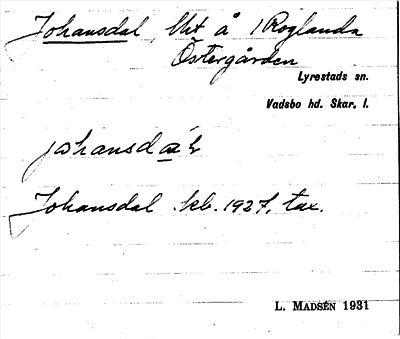 Johansdal, lht å 1 Roglanda
Östergården
Lyrestads sn.
Vadsbo hd. Skar. l.
johansdɑ̀´l
Johansdal kb. 1927, tax.
L. MADSÉN 1931